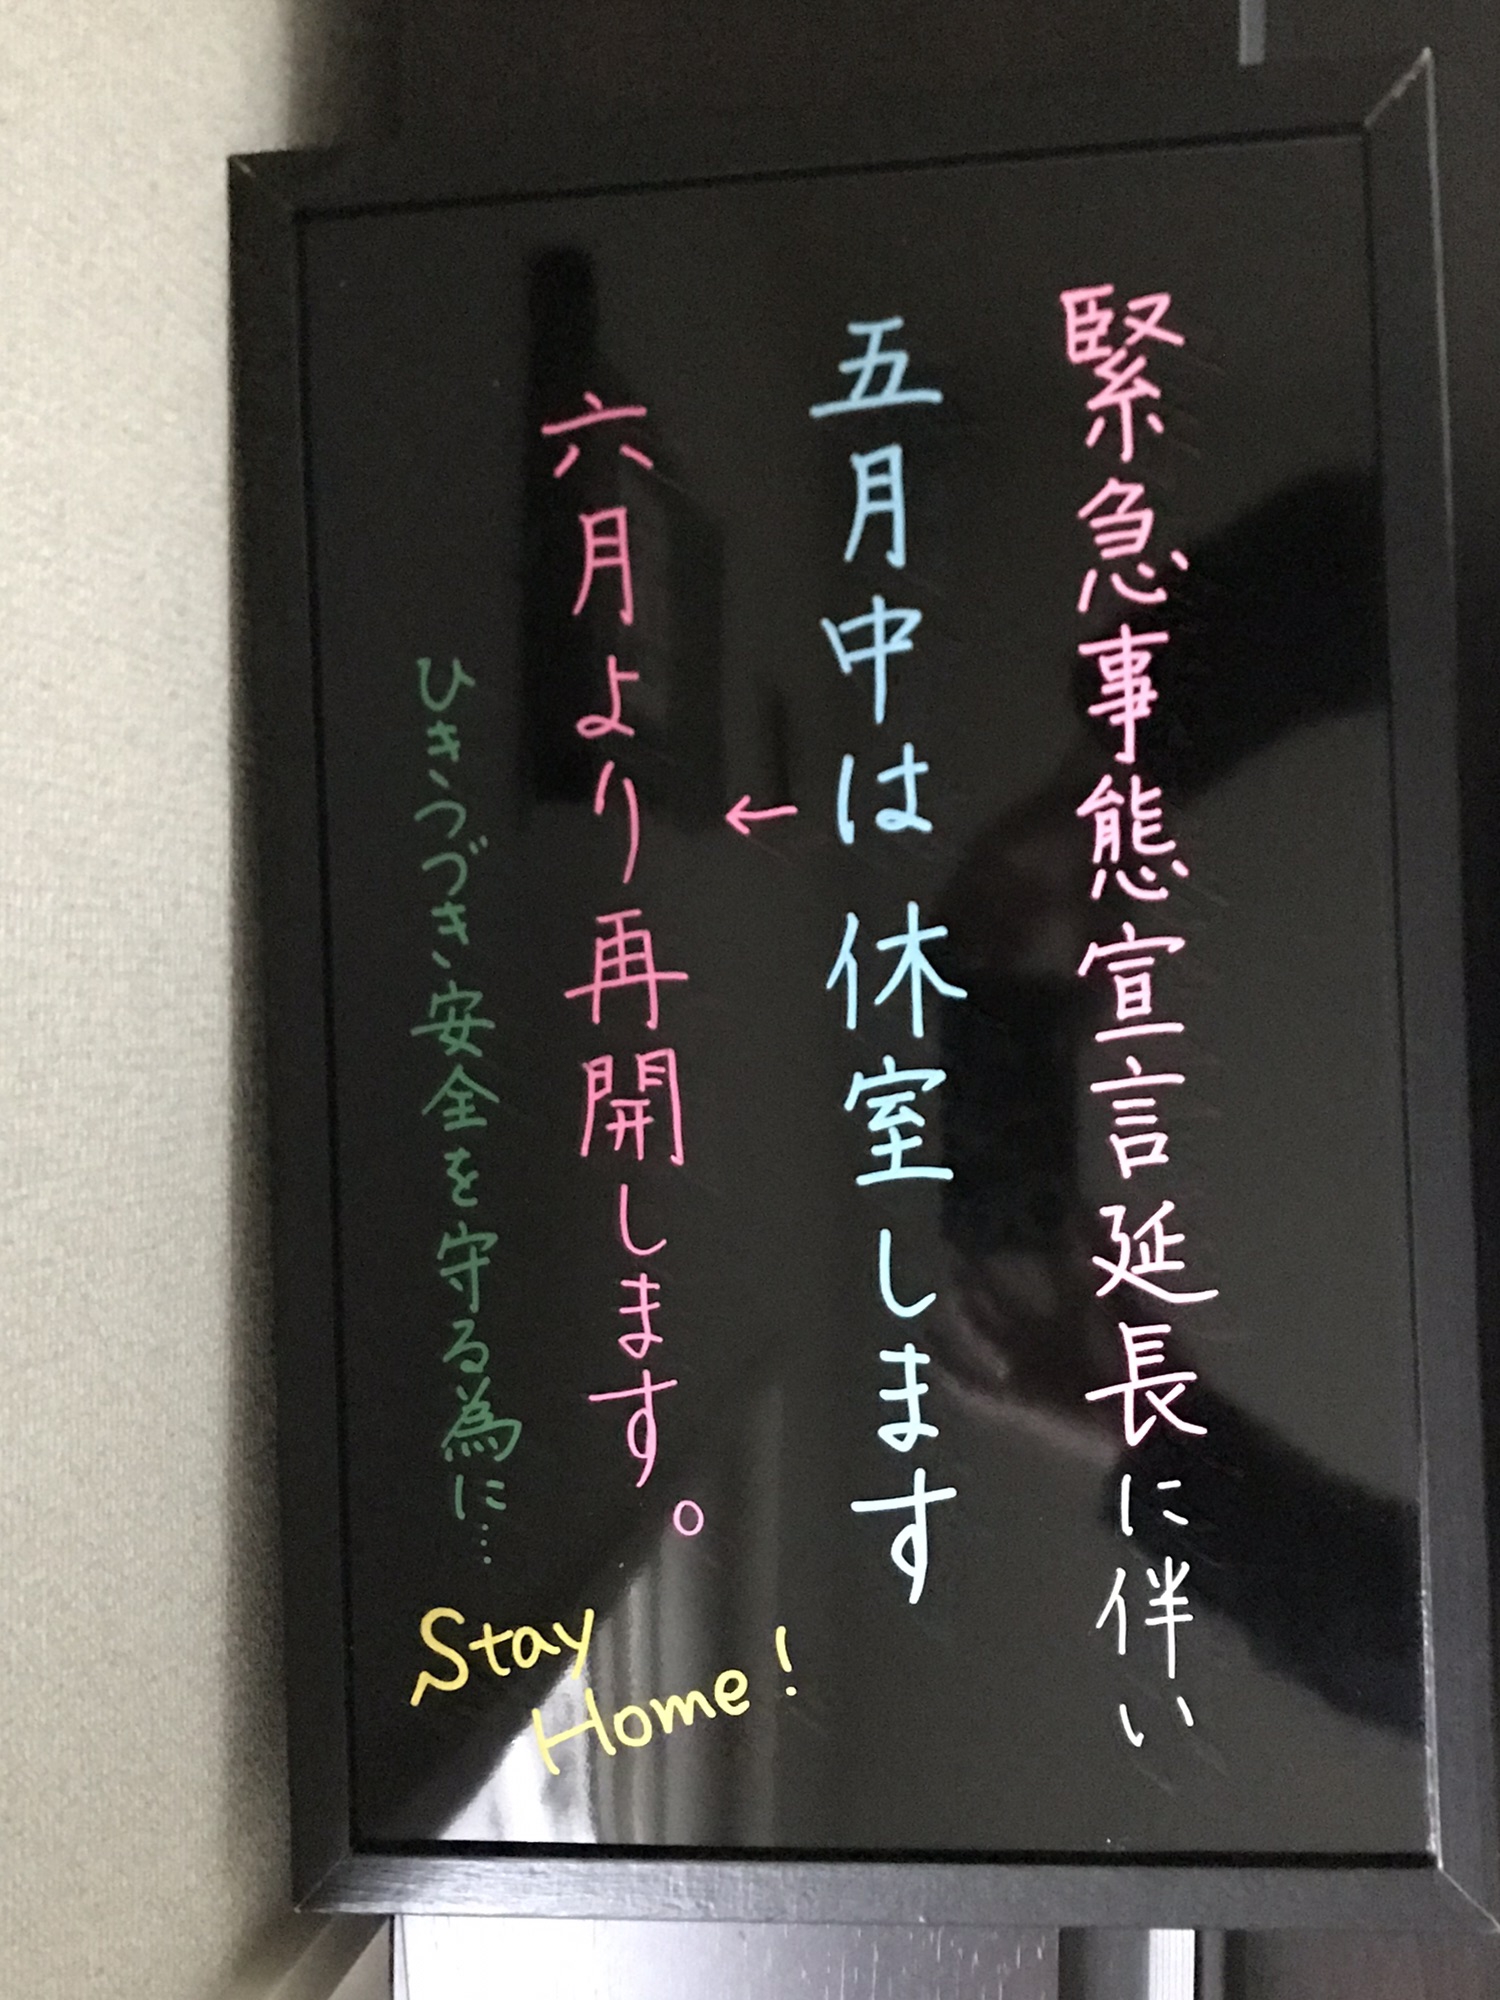 緊急事態宣言延長に伴い
五月中は休室します
←
六月より再開します。
ひきつづき安全を守る為に…
Stay
Home!